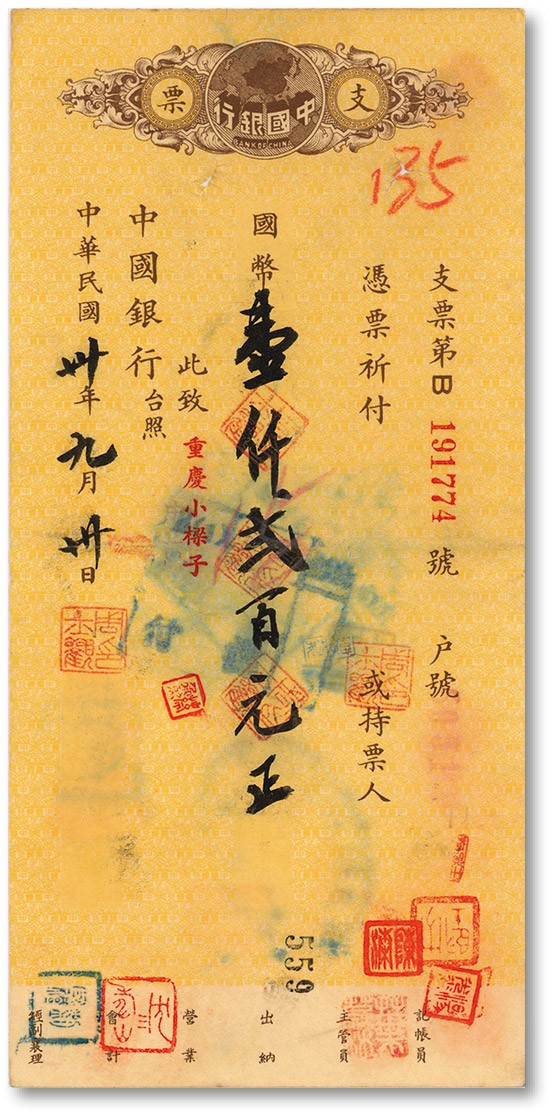 支
票
中國銀行
BANK OF CHINA
135
支票第B 191774 號
戶號
憑票祈付
或持票人
國幣壹仟弍百元正
此致
重慶小樑子
中國銀行台照
中華民國卅年九月卅日
559
記帳員
主管員
出納
營業
會計
經副襄理